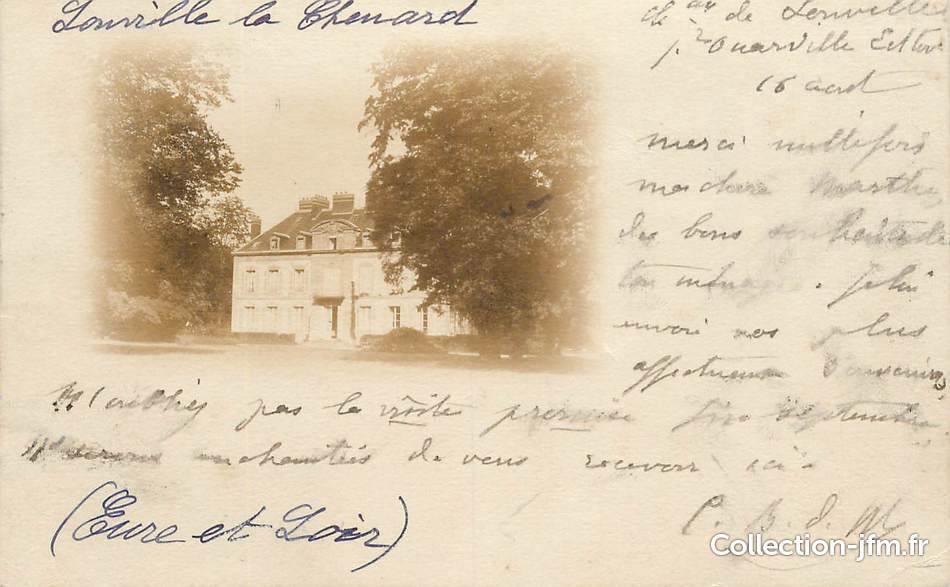 Louville la Chenard
de Louville
Ouarville
16 aout
merci mille fois
ma chère Marthe
des bons souhaits de
ton ménage. Je t'en
envoie nos plus
affectueux souvenirs
N'oubliez pas la visite promise fin Septembre
serons enchantés de vous recevoir ici.
C. B. d. M
(Eure et Loir)
Collection-jfm.fr